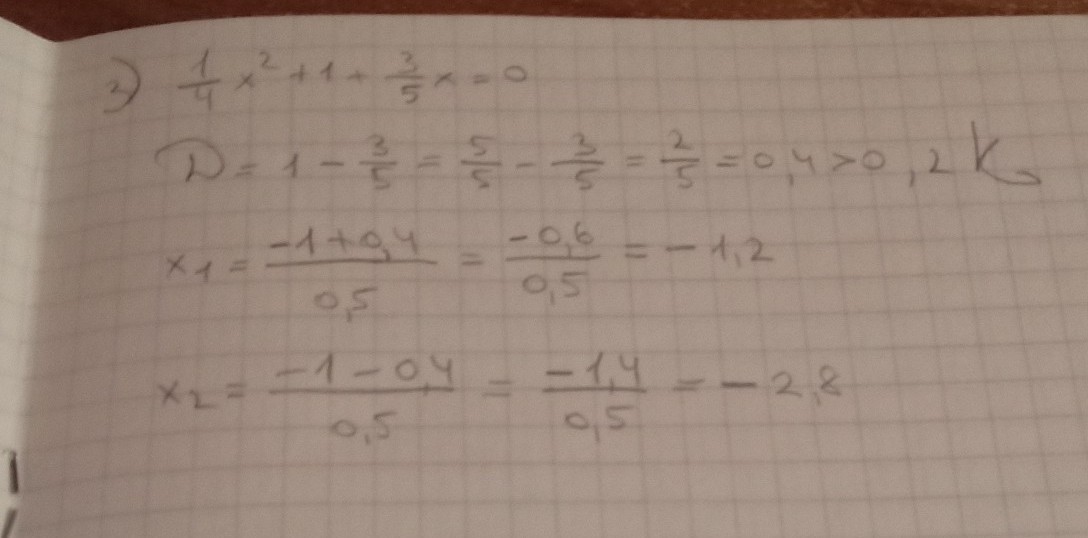 2) 1/4 x² + 1 + 3/5 x = 0
D = 1 - 3/5 = 5/5 - 3/5 = 2/5 = 0,4 > 0, 2 K
x₁ = (-1+0,4)/0,5 = -0,6/0,5 = -1,2
x₂ = (-1-0,4)/0,5 = -1,4/0,5 = -2,8